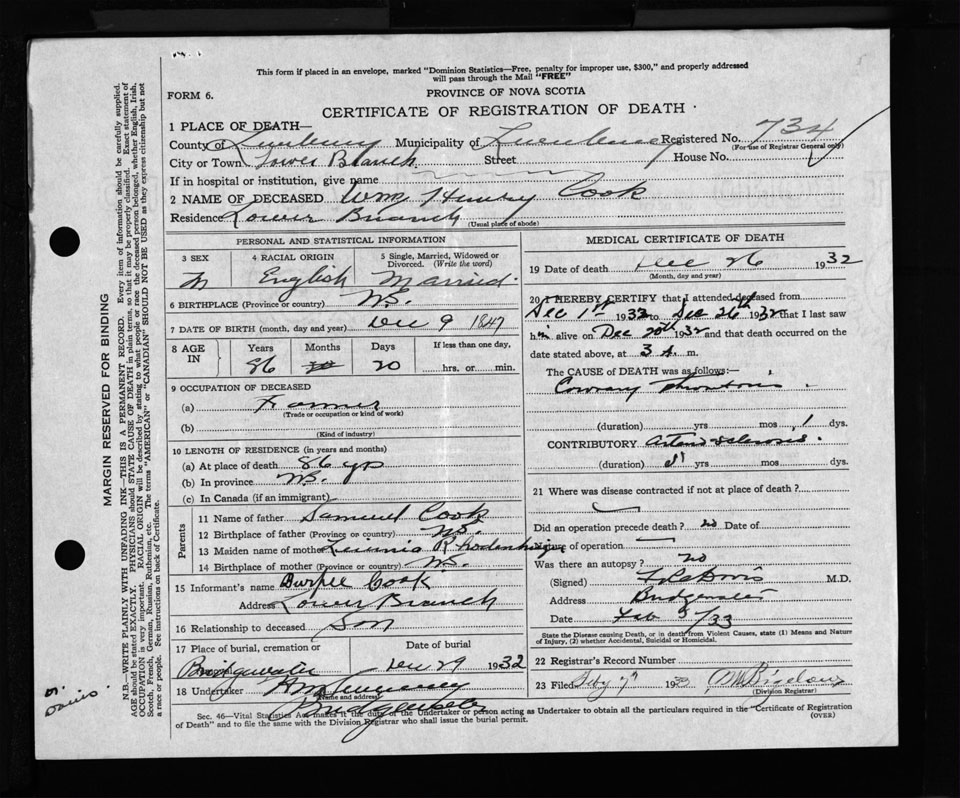 This form if placed in an envelope, marked "Dominion Statistics—Free, penalty for improper use, $300," and properly addressed
will pass through the Mail "FREE"
FORM 6.
PROVINCE OF NOVA SCOTIA
CERTIFICATE OF REGISTRATION OF DEATH
1 PLACE OF DEATH—
County of Lunenburg Municipality of Lunenburg Registered No. 734
(For use of Registrar General only)
City or Town Lower Branch Street House No.
If in hospital or institution, give name
2 NAME OF DECEASED Wm Henry Cook
Residence Lower Branch
(Usual place of abode)
PERSONAL AND STATISTICAL INFORMATION
3 SEX
M
4 RACIAL ORIGIN
English
5 Single, Married, Widowed or Divorced. (Write the word)
Married.
6 BIRTHPLACE (Province or country) N.S.
7 DATE OF BIRTH (month, day and year) Dec 9 1847
8 AGE IN
Years Months Days If less than one day,
86 20 hrs. or min.
9 OCCUPATION OF DECEASED
(a) Farmer
(Trade or occupation or kind of work)
(b)
(Kind of industry)
10 LENGTH OF RESIDENCE (in years and months)
(a) At place of death 86 yrs
(b) In province N.S.
(c) In Canada (if an immigrant)
Parents
11 Name of father Samuel Cook
12 Birthplace of father (Province or country) N.S.
13 Maiden name of mother Rhodenhizer
14 Birthplace of mother (Province or country) N.S.
15 Informant's name Burpee Cook
Address Lower Branch
16 Relationship to deceased Son
17 Place of burial, cremation or
Date of burial
Bridgewater Dec 29 1932
18 Undertaker
(Name and address)
Bridgewater
MEDICAL CERTIFICATE OF DEATH
19 Date of death Dec 26 1932
(Month, day and year)
20 I HEREBY CERTIFY that I attended deceased from
Dec 1st 1932 to Dec 26th 1932 that I last saw
him alive on Dec 20th 1932 and that death occurred on
date stated above, at 3 A. m.
The CAUSE of DEATH was as follows:—
Coronary Thrombosis
(duration) yrs mos 1 dys.
CONTRIBUTORY Arterio-sclerosis.
(duration) yrs mos dys.
21 Where was disease contracted if not at place of death?
Did an operation precede death? no Date of
Nature of operation —
Was there an autopsy? no
(Signed) Davis M.D.
Address Bridgewater
Date Feb /33
State the Disease causing Death, or in death from Violent Causes, state (1) Means and Nature
of Injury, (2) whether Accidental, Suicidal or Homicidal.
22 Registrar's Record Number
23 Filed Feby 7th 193
(Division Registrar)
Sec. 46—Vital Statistics Act makes it the duty of the Undertaker or person acting as Undertaker to obtain all the particulars required in the "Certificate of Registration
of Death" and to file the same with the Division Registrar who shall issue the burial permit.
(OVER)
MARGIN RESERVED FOR BINDING
N.B.—WRITE PLAINLY WITH UNFADING INK—THIS IS A PERMANENT RECORD. Every item of information should be carefully supplied.
AGE should be stated EXACTLY. PHYSICIANS should STATE CAUSE OF DEATH in plain terms, so that it may be properly classified. Exact statement of
OCCUPATION is very important. RACIAL ORIGIN will be described by stating to what people or race the deceased person belonged, whether English, Irish,
Scotch, French, German, Russian, Ruthenian, etc. The terms "AMERICAN" or "CANADIAN" SHOULD NOT BE USED as they express citizenship but not
a race or people. See instructions on back of Certificate.
Davis